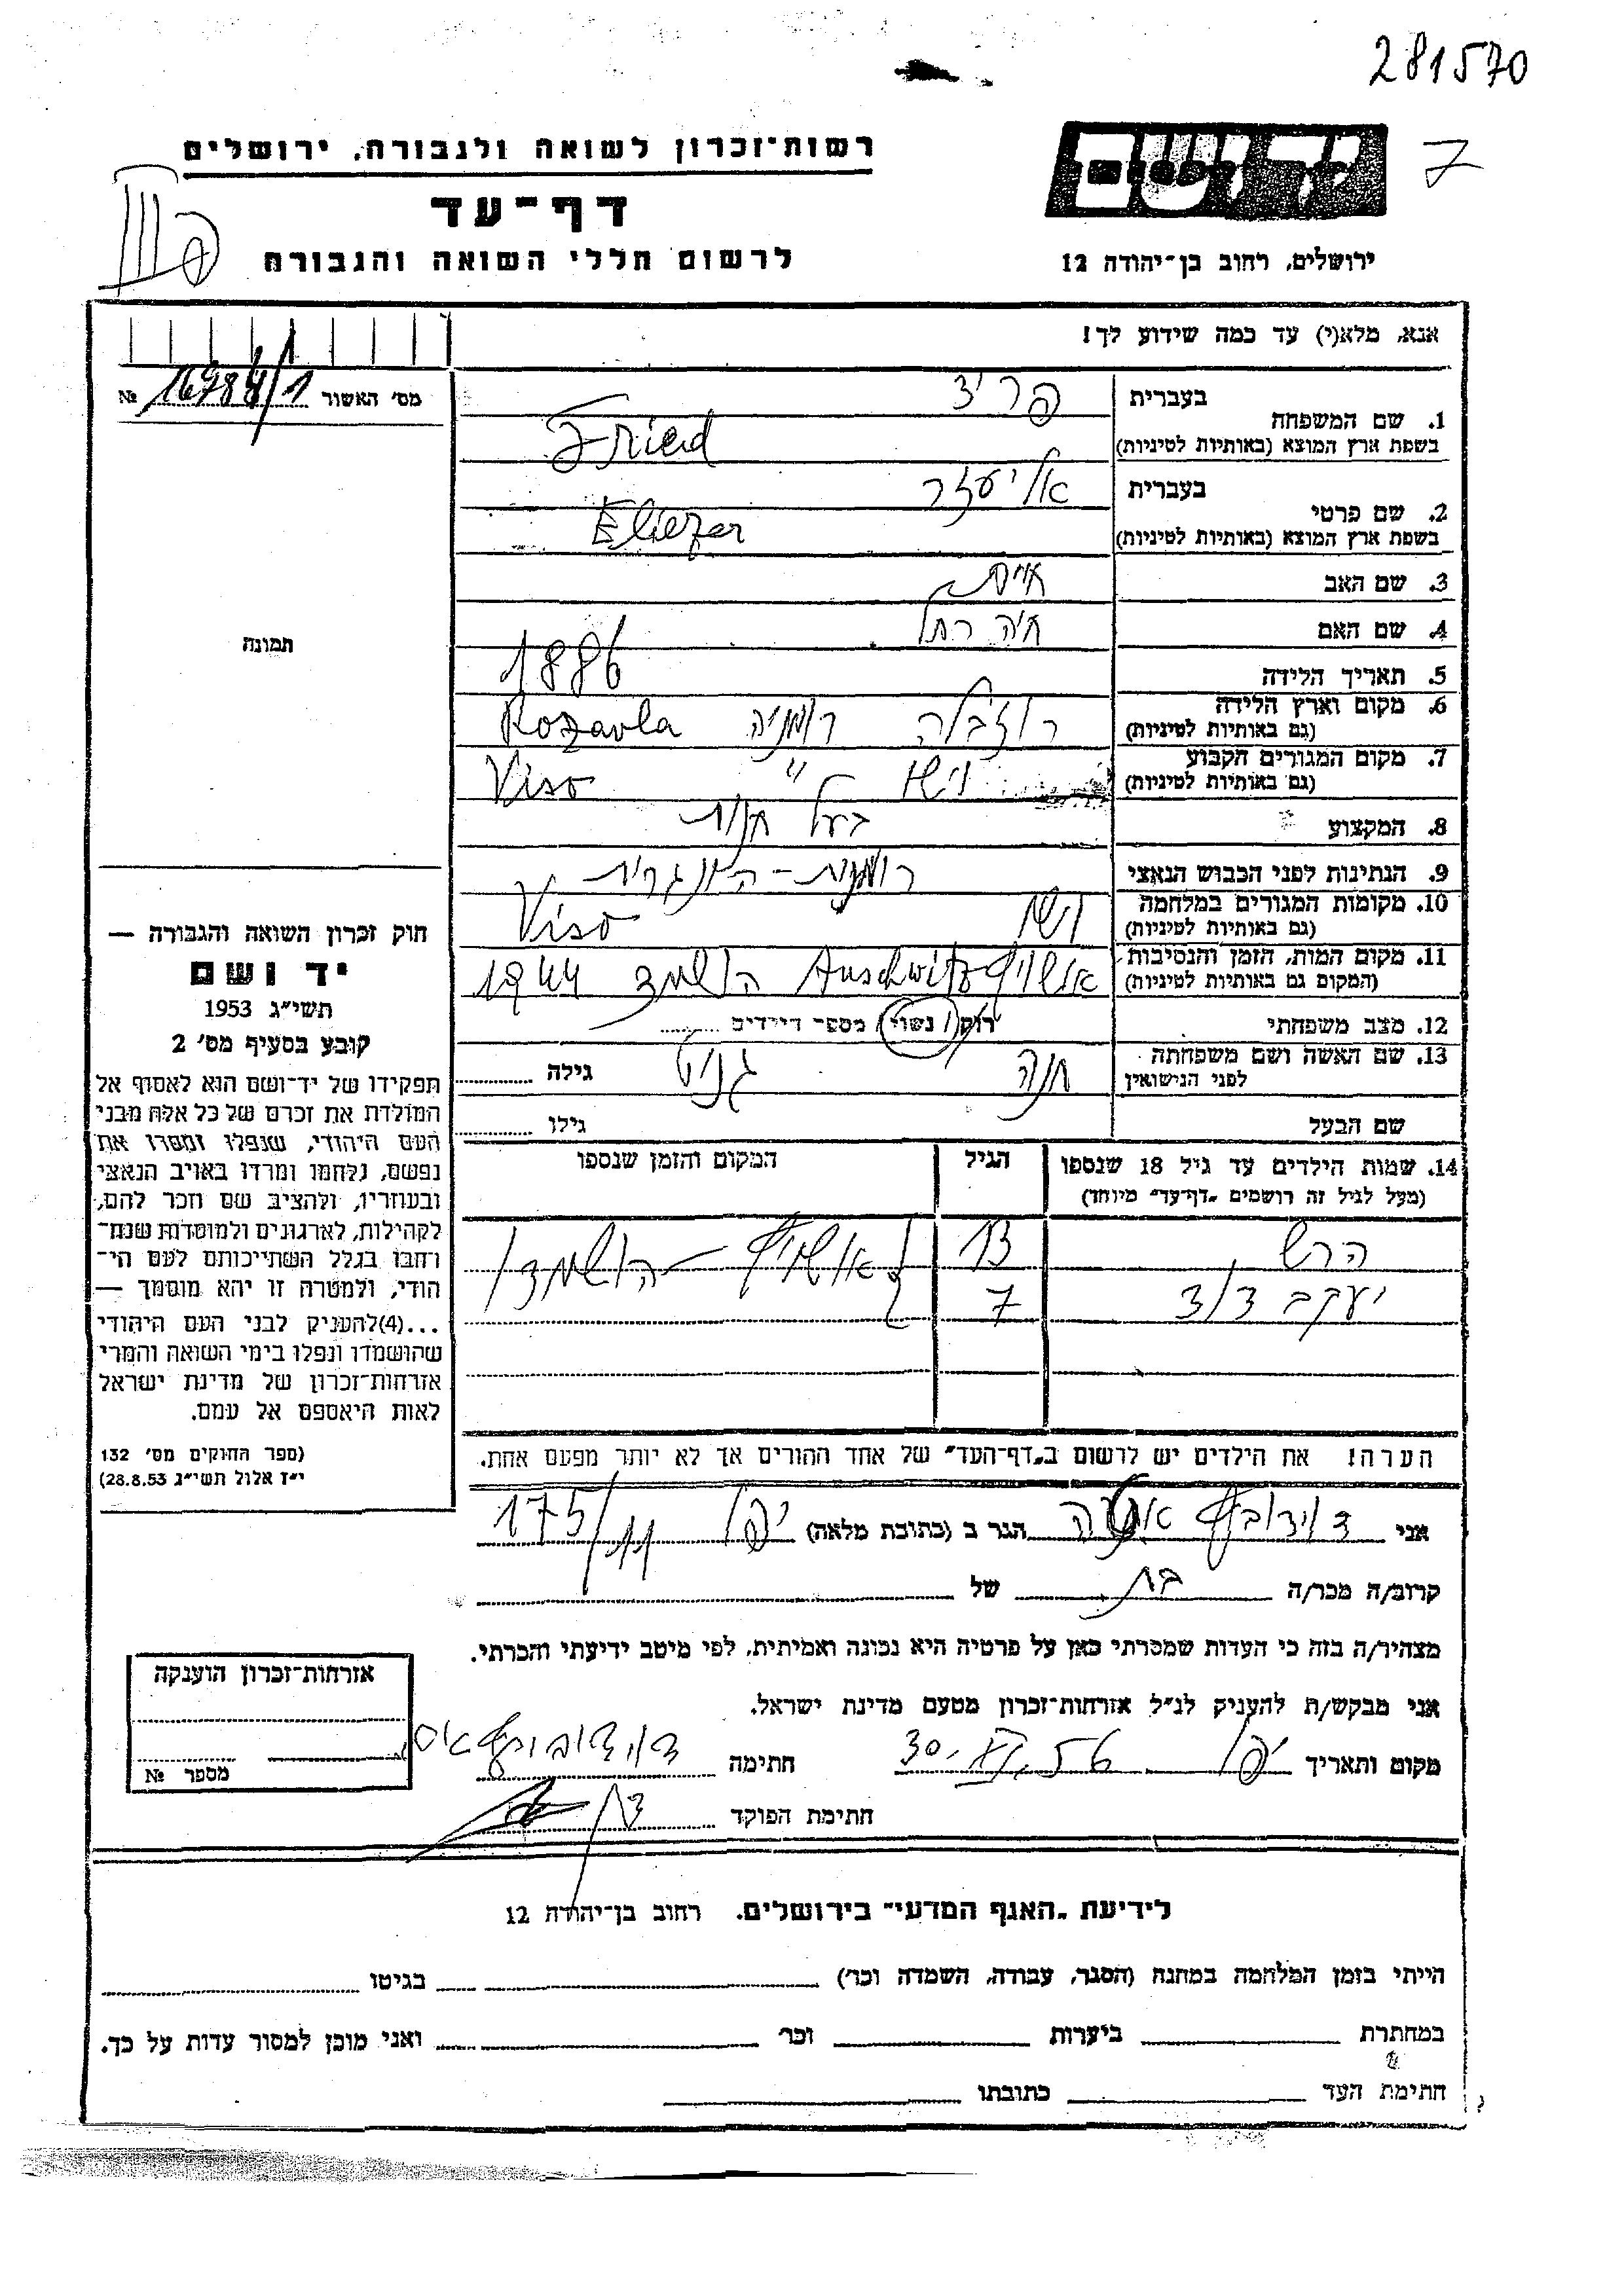 281570
רשות־זכרון לשואה ולגבורה, ירושלים
יד ושם
7
דף־עד
לרשום חללי השואה והגבורה
ירושלים, רחוב בן־יהודה 12
אנא, מלא(י) עד כמה שידוע לך!
מס׳ האשור 16784/1 №
1. שם המשפחה
בעברית פריד
בשפת ארץ המוצא (באותיות לטיניות) Fried
2. שם פרטי
בעברית אליעזר
בשפת ארץ המוצא (באותיות לטיניות) Eliezer
3. שם האב
4. שם האם חיה רחל
5. תאריך הלידה 1886
6. מקום וארץ הלידה
(גם באותיות לטיניות) רוזבלה רומניה Rozavla
7. מקום המגורים הקבוע
(גם באותיות לטיניות) וישו " Viso
8. המקצוע בעל חנות
9. הנתינות לפני הכבוש הנאצי רומנית-הונגרית
10. מקומות המגורים במלחמה
(גם באותיות לטיניות) וישו Viso
11. מקום המות, הזמן והנסיבות
(המקום גם באותיות לטיניות) אושויץ Auschwitz הושמד 1944
12. מצב משפחתי רוק/נשוי/ מספר הילדים
13. שם האשה ושם משפחתה
לפני הנישואין חנה גניט גילה
שם הבעל גילו
14. שמות הילדים עד גיל 18 שנספו
(מעל לגיל זה רושמים „דף־עד״ מיוחד)
הגיל
המקום והזמן שנספו
הרש 13 אושויץ - הושמדו
יעקב דוד 7
הערה! את הילדים יש לרשום ב„דף־העד״ של אחד ההורים אך לא יותר מפעם אחת.
תמונה
חוק זכרון השואה והגבורה —
יד ושם
תשי״ג 1953
קובע בסעיף מס׳ 2
תפקידו של יד־ושם הוא לאסוף אל
המולדת את זכרם של כל אלה מבני
העם היהודי, שנפלו ומסרו את
נפשם, נלחמו ומרדו באויב הנאצי
ובעוזריו, ולהציב שם וזכר להם,
לקהילות, לארגונים ולמוסדות שנח־
רחבו בגלל השתייכותם לעם הי־
הודי, ולמטרה זו יהא מוסמך —
...(4)להעניק לבני העם היהודי
שהושמדו ונפלו בימי השואה והמרי
אזרחות־זכרון של מדינת ישראל
לאות היאספם אל עמם.
(ספר החוקים מס׳ 132
י״ז אלול תשי״ג 28.8.53)
אני דוידוביץ הגר ב (כתובת מלאה) יפו 175/11
קרוב/ה מכר/ה בת של
מצהיר/ה בזה כי העדות שמסרתי כאן על פרטיה היא נכונה ואמיתית, לפי מיטב ידיעתי והכרתי.
אני מבקש/ת להעניק לנ״ל אזרחות־זכרון מטעם מדינת ישראל.
מקום ותאריך יפו 30. 56 חתימה
חתימת הפוקד
אזרחות־זכרון הוענקה
מספר №
לידיעת „האגף המדעי״ בירושלים. רחוב בן־יהודה 12
הייתי בזמן המלחמה במחנה (הסגר, עבודה, השמדה וכר׳) בגיטו
במחתרת ביערות וכר׳ ואני מוכן למסור עדות על כך.
חתימת העד כתובתו